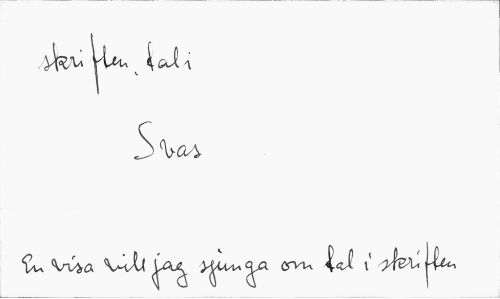 skriften, tal i
Svas
En visa vill jag sjunga om tal i skriften